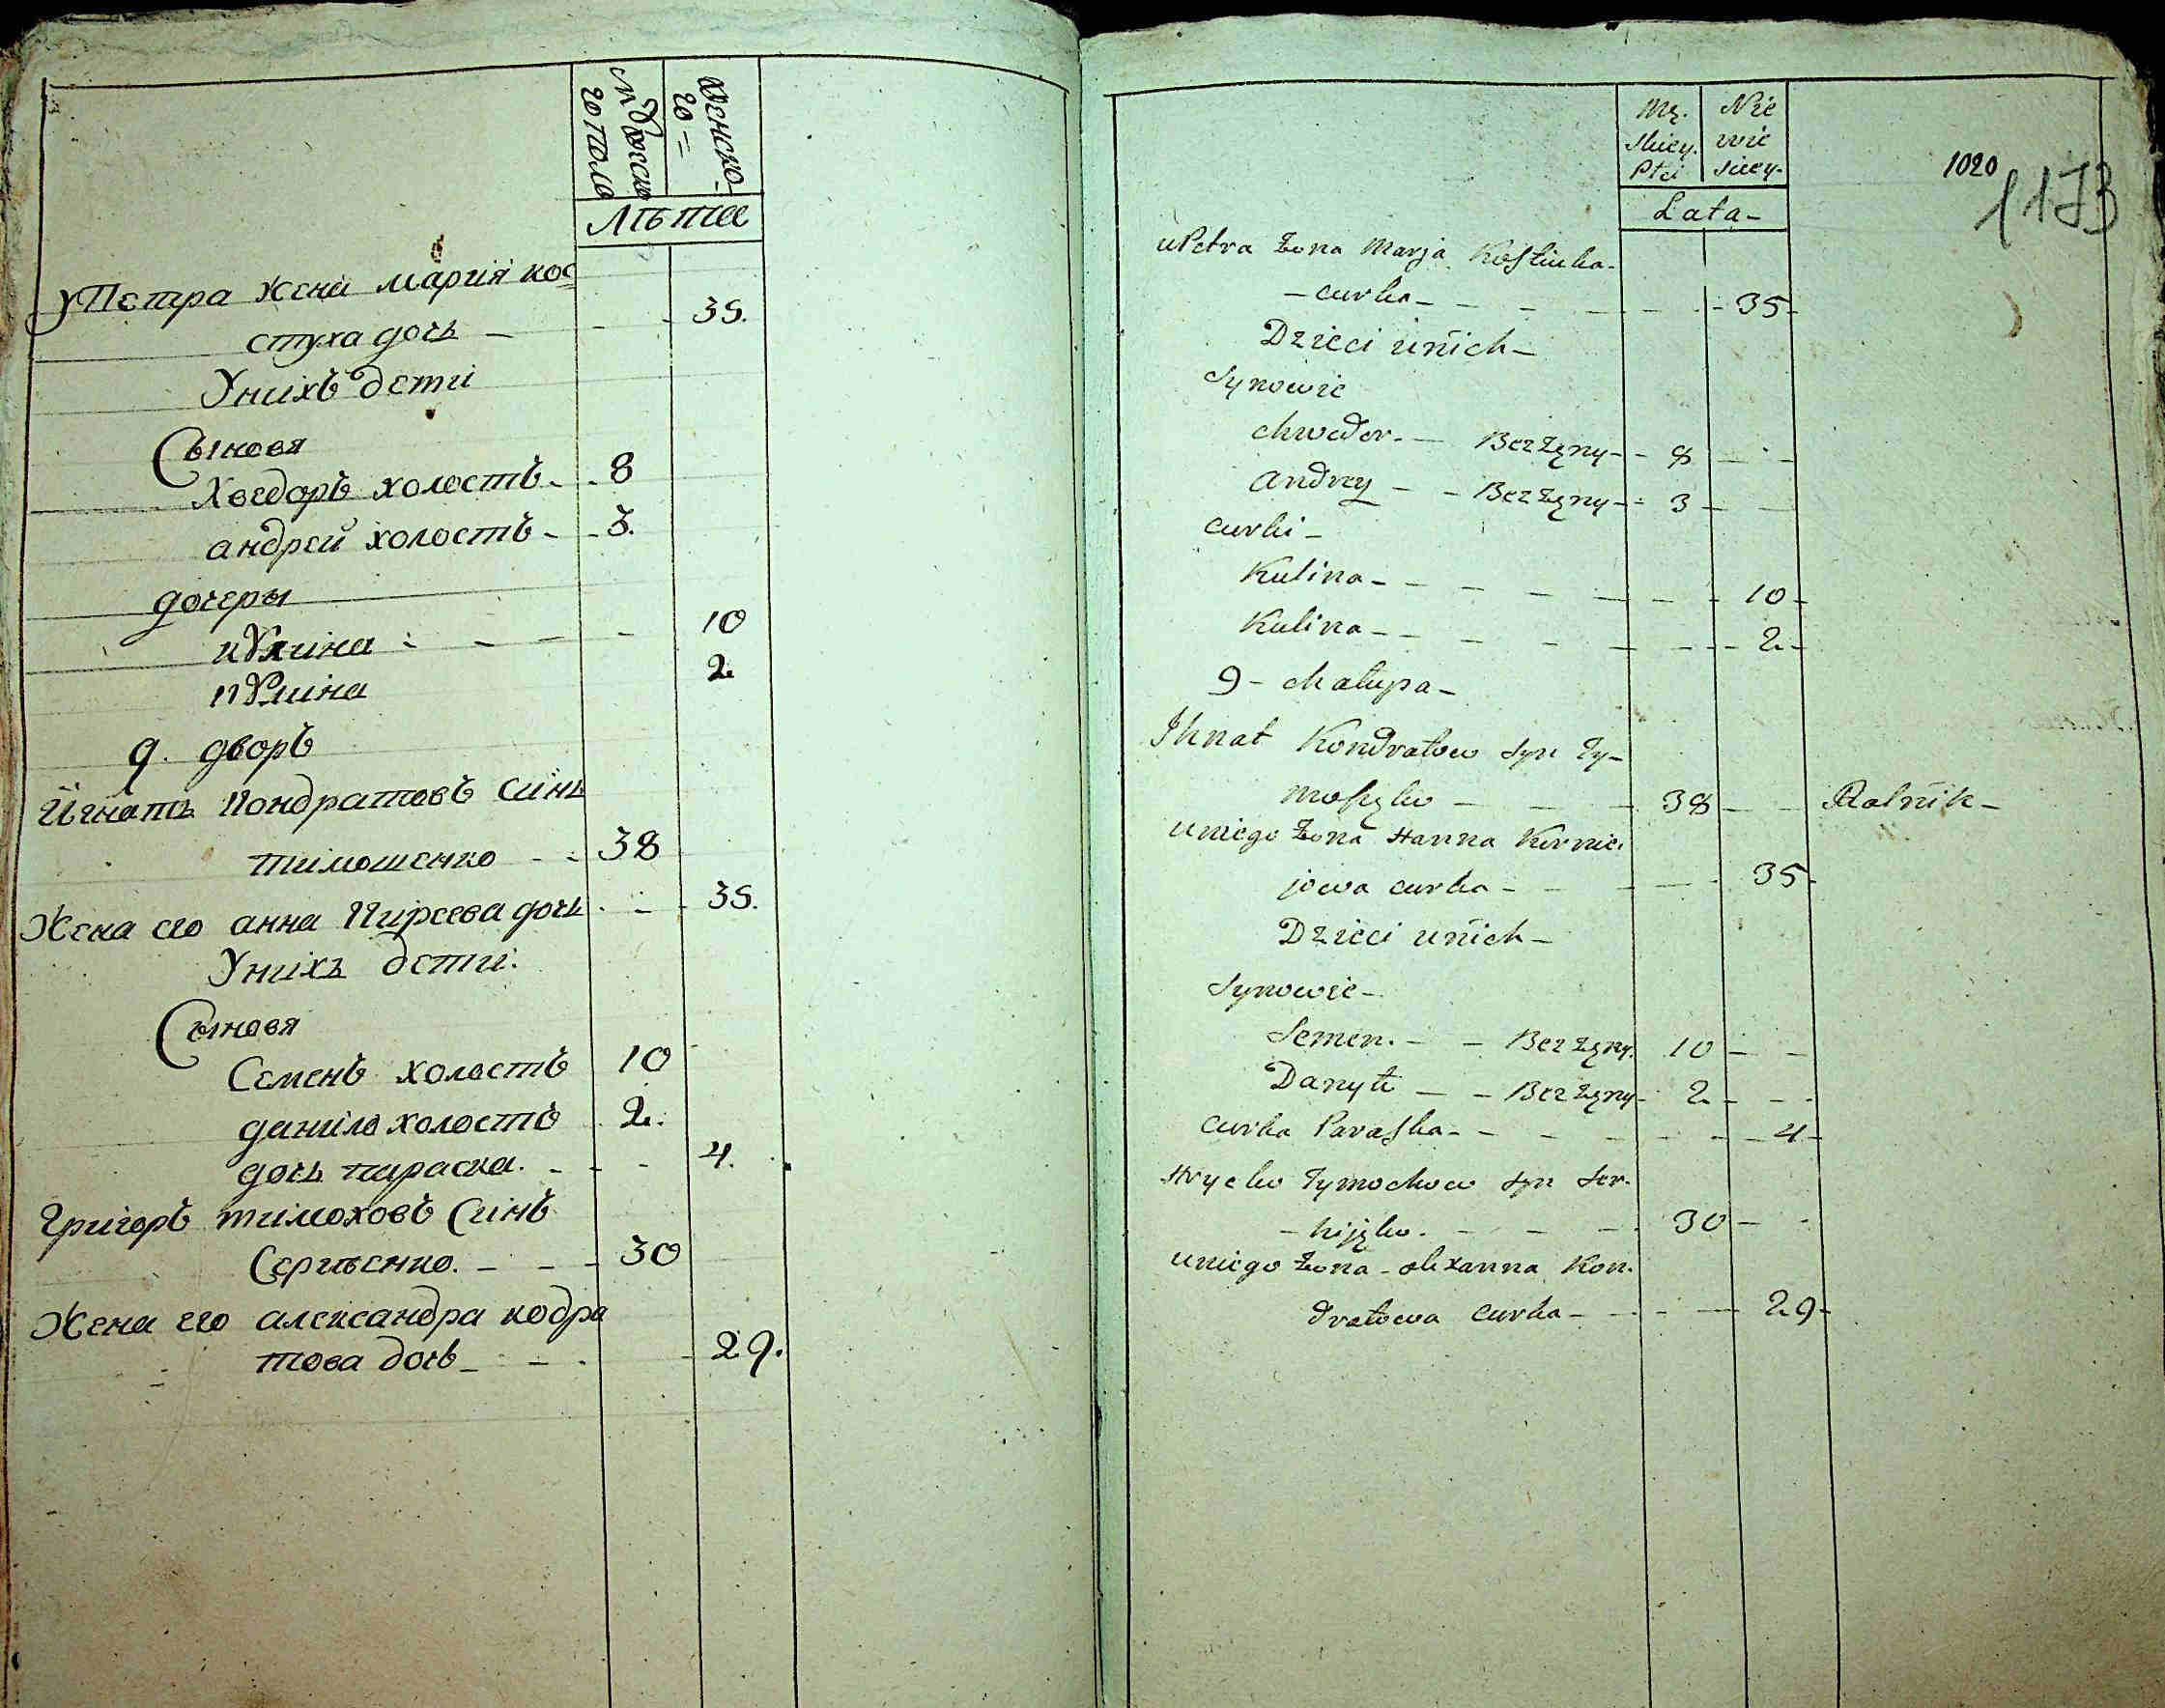 мужско
го пола
женско-
го =
Лѣта
уПетра жена мария кос
стуха дочь - - - 35.
Унихъ дети
Сыновя
Хведоръ холостъ - - 8
андрей холостъ - - 3.
дочеры
кулина - - - - 10
кулина 2
9. дворъ
Игнатъ Кондратовъ Синъ
тимошенко - - 38
Жена его анна Кирѣева дочь - - 35.
Унихъ дети.
Сыновя
Семенъ холостъ 10
данило холостъ 2.
дочь параска. - - - 4.
Григоръ тимоховъ Синъ
Сергѣенко. - - - 30
Жена его александра кодра
това дочь - - - - 29.
Mę.
skiey.
Płci
Nie
wie
sciey-
Lata-
1020
1173
uPetra Żona Marja Kostiuha-
- curka - - - - - - 35-
Dzieci unich-
Synowie
Chwedor. - Bezżęny - - 8 - -
Andrey - - Bezżęny - - 3 - -
Curki-
Kulina - - - - - - - 10-
Kulina - - - - - - - 2-
9 - Chałupa-
Ihnat Kondratow Syn Ty-
moszęko - - - - 38 - - Rolnik-
uniego Żona Hanna Kirrie.
jowa curka - - - - 35-
Dzieci unich-
Synowie-
Semen. - - Bezżęny. 10 - -
Danyło - - Bezżęny - 2 - - -
Curka Paraska - - - - - - 4-
Hryćko Tymochow Syn Ser-
- hijęko. - - - - 30 - -
uniego Żona - Olexanna Kon.
dratowa Curka - - - - 29-